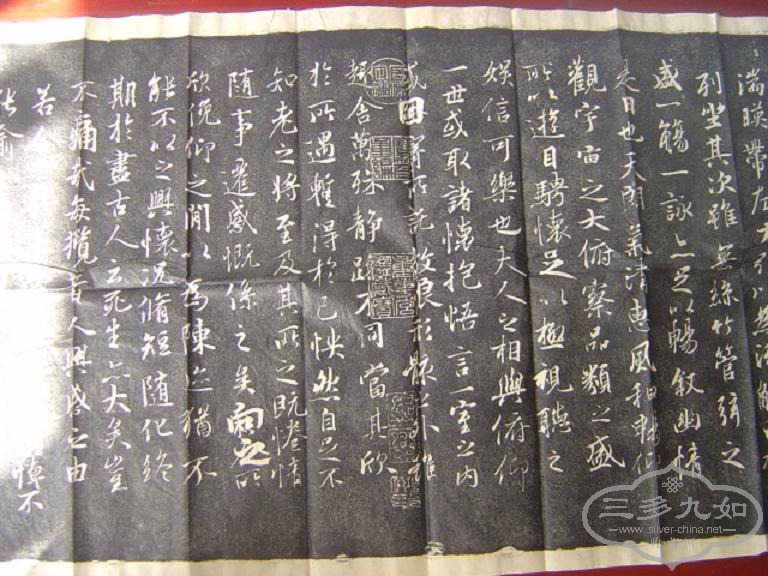 湍暎帶左右引以為流觴曲水
列坐其次雖無絲竹管弦之
盛一觴一詠亦足以暢敘幽情
是日也天朗氣清惠風和暢仰
觀宇宙之大俯察品類之盛
所以遊目騁懷足以極視聽之
娛信可樂也夫人之相與俯仰
一世或取諸懷抱悟言一室之內
或因寄所託放浪形骸之外雖
趣舍萬殊靜躁不同當其欣
於所遇暫得於己怏然自足不
知老之將至及其所之既惓情
隨事遷感慨係之矣向之所
欣俛仰之間以為陳迹猶不
能不以之興懷況脩短隨化終
期於盡古人云死生亦大矣豈
不痛哉每攬昔人興感之由
若合 悼不
喻
三多九如
www.silver-china.net